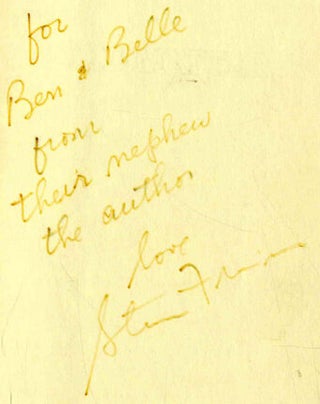 for
Ben & Belle
from
their nephew
the author
love